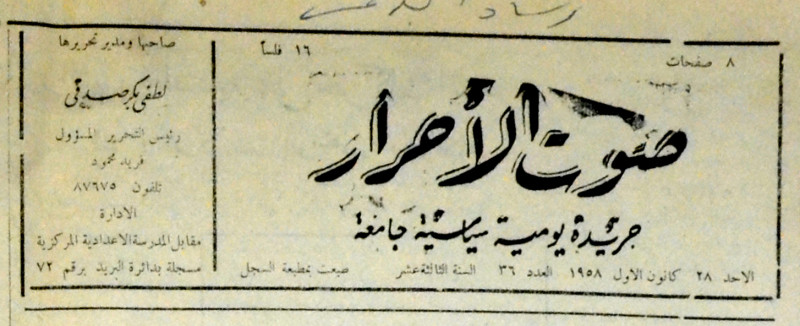 ٨ صفحات
١٦ فلساً
صوت الأحرار
جريدة يومية سياسية جامعة
الاحد ٢٨ كانون الاول ١٩٥٨ العدد ٣٦ السنة الثالثة عشر طبعت بمطبعة السجل
صاحبها ومدير تحريرها
لطفي بكر صدقي
رئيس التحرير المسؤول
فريد محمود
تلفون ٨٧٦٧٥
الادارة
مقابل المدرسة الاعدادية المركزية
مسجلة بدائرة البريد برقم ٧٢